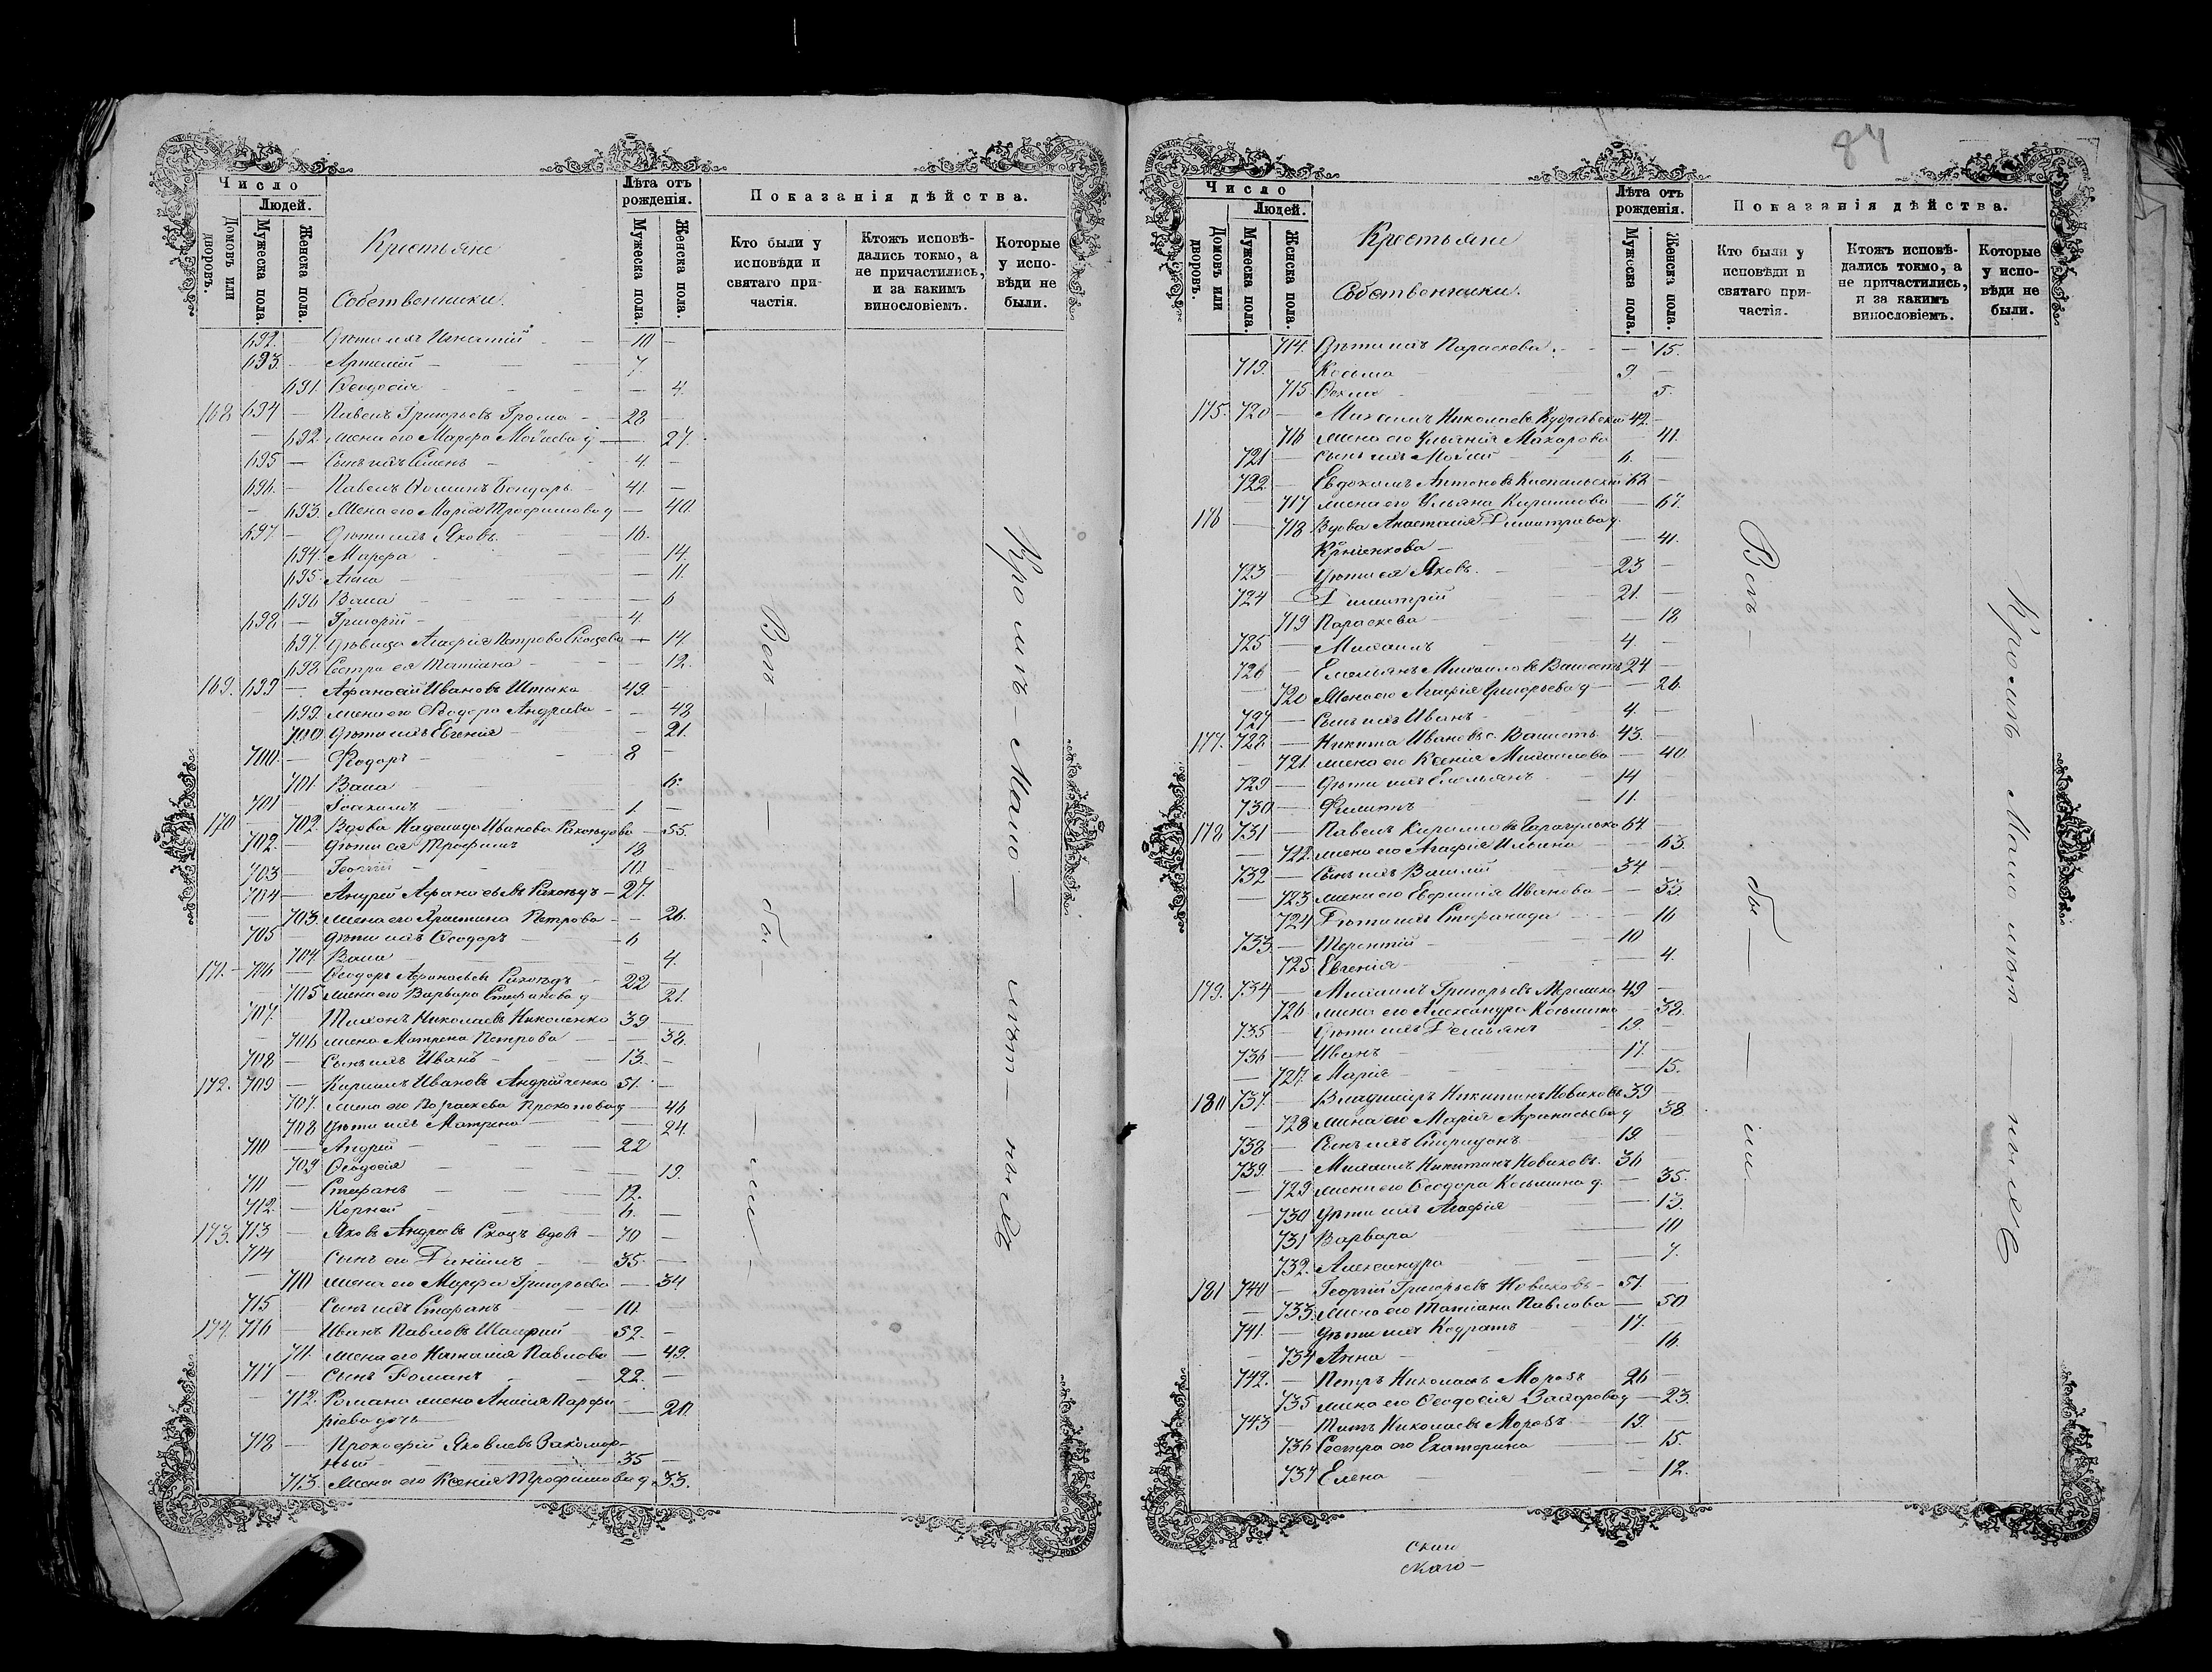 Число
Людей.
Домовъ или дворовъ.
Мужеска пола.
Женска пола.
Крестьяне
Собственники.
Лѣта отъ рожденія.
Мужеска пола.
Женска пола.
Показанія дѣйства.
Кто были у исповѣди и святаго причастія.
Ктожъ исповѣдались токмо, а не причастились, и за какимъ винословіемъ.
Которые у исповѣди не были.
692. — Дѣти ихъ Игнатій — 10 —
693. — Артемій — 7.
691. Ѳеодосія — 4.
168 694 — Павелъ Григорьевъ Грома — 28 —
692. жена его Марфа Моѵсеева д — 27.
695 — Сынъ ихъ Семенъ — 4. —
696. — Павелъ Ѳоминъ Бондарь 41. —
693. Жена его Марія Трофимова д — 40.
697. — Дѣти ихъ Яковъ. — 16.
694. Марфа — 14.
695. Анна — 11.
696 Васса — 6
698 — Григорій — 4.
697. дѣвица Агафія Петрова — 14.
698. Сестра ея Татіана — 12.
169. 699 — Афанасій Ивановъ Штыка 49 —
699. жена его Ѳеодора Андреева — 48
700. Дѣти ихъ Евгенія — 21.
700. — Ѳеодоръ — 8 —
701. Васса — 6.
701 — Іоакимъ — 1. —
170 — 702. Вдова Надежда Иванова — 55.
702. — дѣти ея Трофимъ — 13
703 — Георгій
704 — Андрей Афанасьевъ — 27.
703. жена его Христина Петрова — 26.
705 — дѣти ихъ Ѳеодоръ — 6
704. Васса — 4.
171. — 706 — Ѳеодоръ Афанасьевъ 22 —
705 жена его Варвара Стефанова д — 21.
707. — Тихонъ Николаевъ Николенко 39 —
706 жена Матрена Петрова — 38.
708 — Сынъ ихъ Иванъ — 13. —
172. 709 — Кирилъ Ивановъ Андрійченко 51. —
707. жена его Параскева Прокопова д — 46
708 дѣти ихъ Матрена — 24.
710 — Андрей — 22
709 Ѳеодосія — 19.
711 — Стефанъ — 12.
712. — Корней — 6. —
173. 713 — Яковъ Андреевъ вдовъ — 70 —
714 Сынъ его Даніилъ — 35. —
710 жена его Марфа Григорьева — 34
715 — Сынъ ихъ Стефанъ — 10.
174. 716 — Иванъ Павловъ 52. —
711. жена его Наталія Павлова — 49.
717 — Сынъ Романъ 22. —
712. Романа жена Анисія Парфи
ріева дочь — 20.
718 — Прокофій Яковлевъ Закомор-
ный — 35 —
713. Жена его Ксенія Трофимова д. 33.
Всѣ — бы — ли —
Кромѣ — мало — лѣт — ныхъ
84
Число
Людей.
Домовъ или дворовъ.
Мужеска пола.
Женска пола.
Крестьяне
Собственники.
Лѣта отъ рожденія.
Мужеска пола.
Женска пола.
Показанія дѣйства.
Кто были у исповѣди и святаго причастія.
Ктожъ исповѣдались токмо, а не причастились, и за какимъ винословіемъ.
Которые у исповѣди не были.
714. Дѣти ихъ Параскева — 15.
719. Косьма — 9. —
715 — 5.
175. 720 — Михаилъ Николаевъ 42. —
716 жена его Ульянія Макарова — 41.
721 — сынъ ихъ Моѵсей — 6. —
722 — Евдокимъ Антоновъ 68 —
717 жена его Ульяна Кирилова — 67.
176 — 718 Вдова Анастасія Димитріева д.
— 41.
723 — Дѣти ея Яковъ — 23 —
724 — Димитрій — 21. —
719 Параскева — 18
725 — Михаилъ — 4. —
726 — Емельянъ Михаиловъ 24 —
720 Жена его Агафія Григорьева д — 26.
727 — Сынъ ихъ Иванъ — 4. —
177. 728 — Никита Ивановъ 43. —
721. жена его Ксенія Михаилова — 40.
729 — Дѣти ихъ Емельянъ — 14
730 — Филипъ — 11.
178 731 — Павелъ Кириловъ 64. —
722. жена его Агафія Ильина — 63.
732 — Сынъ ихъ Василій — 34.
723 жена его Евфимія Иванова — 33
724 Дѣти ихъ Стефанида — 16
733 — Терентій — 10
725. Евгенія — 4.
179. 734 — Михаилъ Григорьевъ 49 —
726 жена его Александра Косьмина — 38.
735 — Дѣти ихъ Демьянъ — 19. —
736 — Иванъ — 17. —
727. Марія — 15.
180 737. — Владимиръ Никитинъ Новиковъ 39
728 жена его Марія Афанасьева д 38
738 — Сынъ ихъ Спиридонъ — 19. —
739. — Михаилъ Никитинъ Новиковъ. 36
729 жена его Ѳеодора Косьмина д. — 35.
730 Дѣти ихъ Агафія — 13.
731 Варвара — 10
732. Александра — 7.
181 740 — Георгій Григорьевъ Новиковъ — 51. —
733. жена его Татіана Павлова — 50
741. — Дѣти ихъ Кодратъ — 17. —
734 Анна — 16.
742. — Петръ Николаевъ Морозъ 26 —
735 жена его Ѳеодосія д — 23.
743 — Титъ Николаевъ Морозъ 19. —
736 Сестра его Екатерина — 15.
737 Елена — 12.
Всѣ — бы — ли
Кромѣ мало лѣт — ныхъ